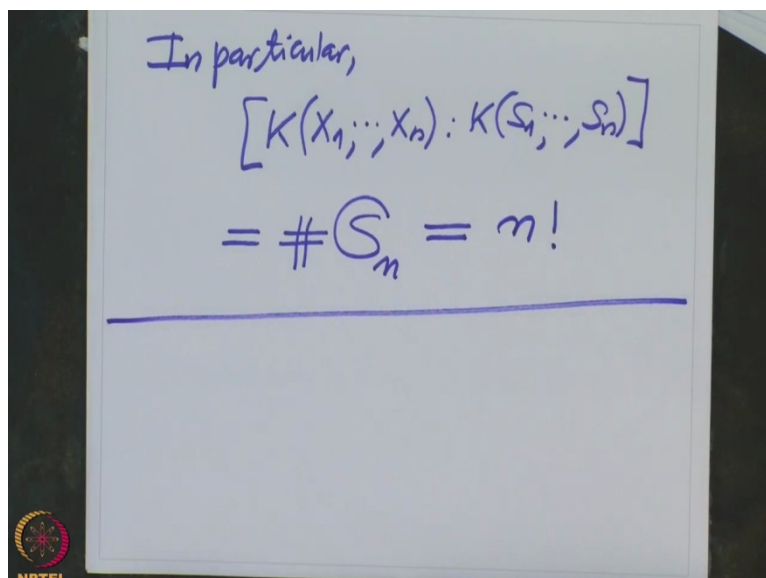 In particular,
[K(X₁,…,Xₙ) : K(S₁,…,Sₙ)]
= #𝔖ₙ = n!
NPTEL